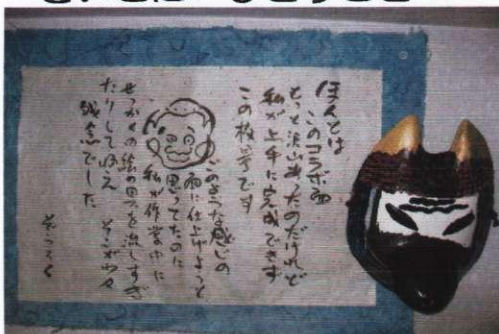 ほんとは
このコラボ面
もっと沢山あったのだけれど
私が上手に完成できず
この枚
です
このような感じの
面に仕上げよっと
思ってたのに
私が作業中に
せっかくの絵の具を流しすぎ
たりして
残念でした